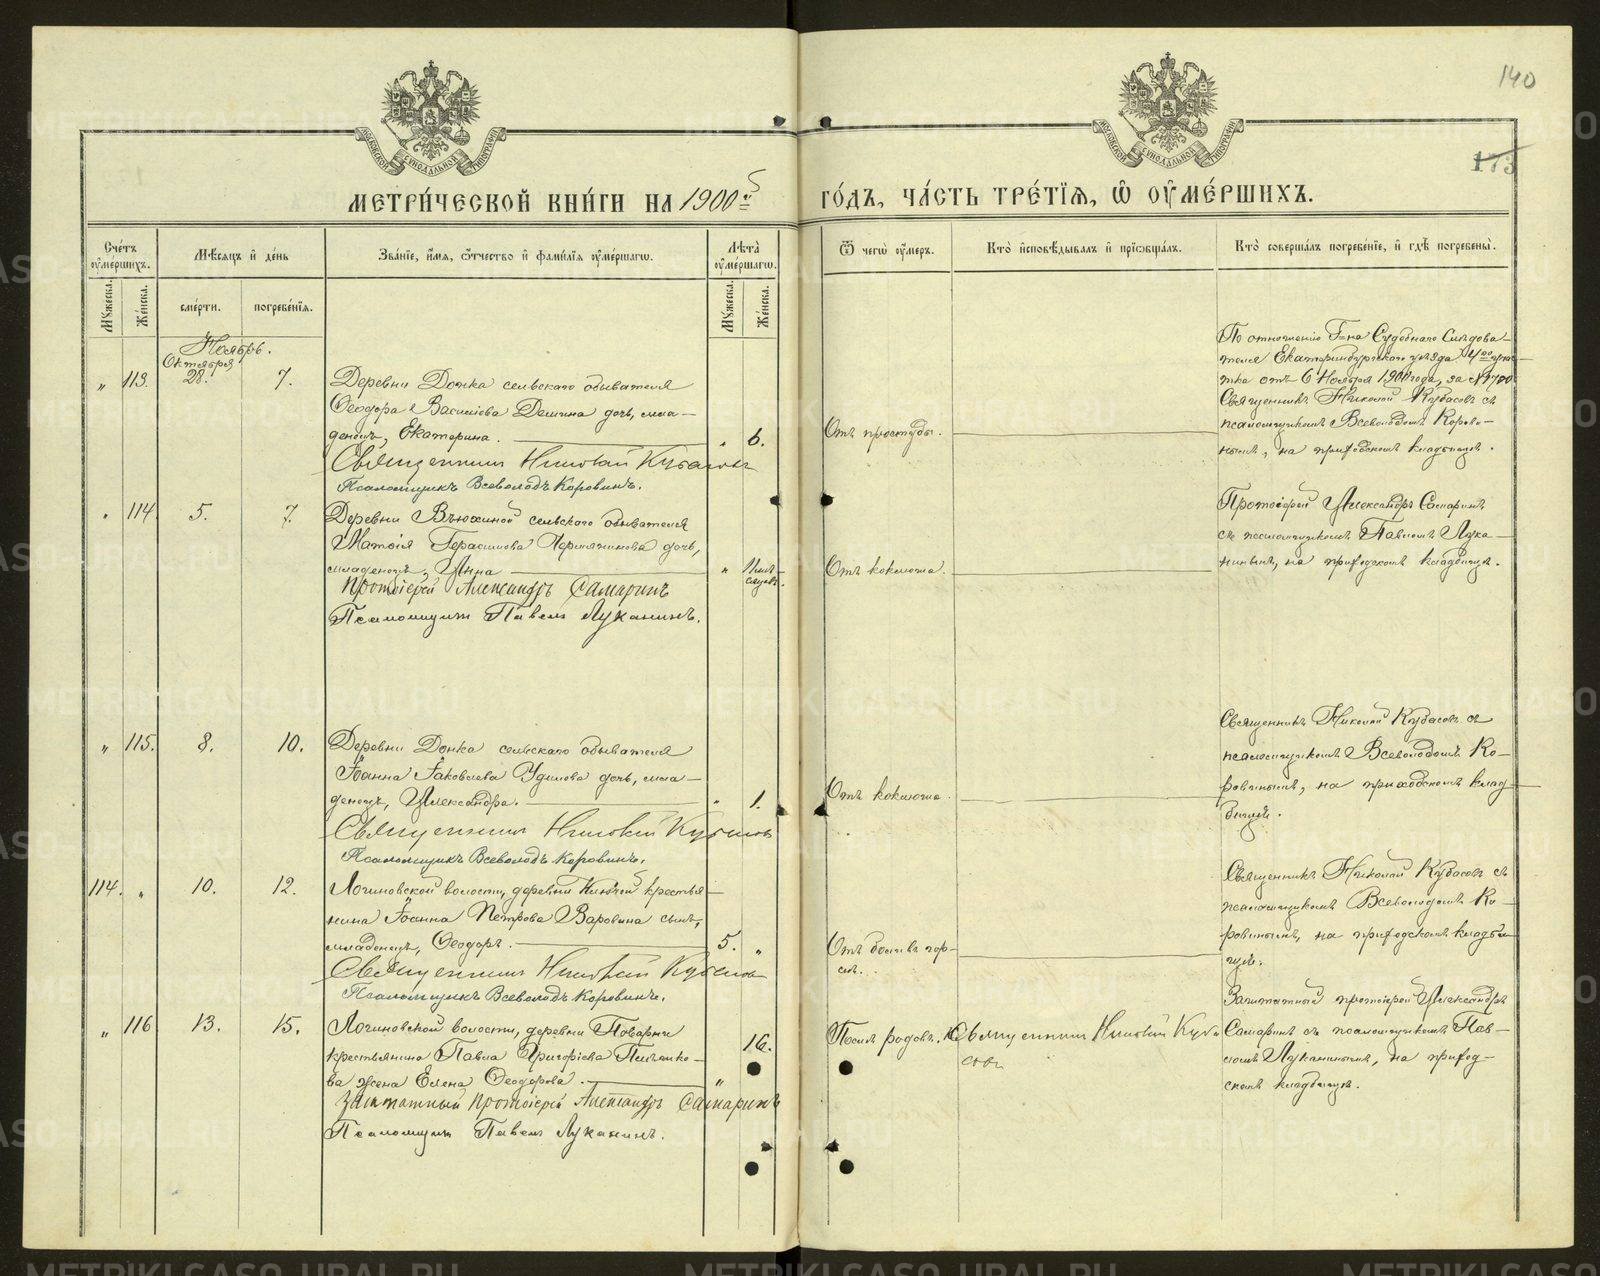 140
173
МЕТРИЧЕСКОЙ КНИГИ НА 1900й
ГОДЪ, ЧАСТЬ ТРЕТІЯ, Ѿ ОУМЕРШИХЪ.
Счетъ оумершихъ.
Мужеска.
Женска.
Мѣсяцъ и день
смерти.
погребенія.
Званіе, имя, отчество и фамилія оумершагѡ.
Лѣта оумершагѡ.
Мужеска.
Женска.
Ѿ чегѡ оумеръ.
Кто исповѣдывалъ и пріѡбщалъ.
Кто совершалъ погребеніе, и гдѣ погребены.
Ноябрь.
Октября
„ 113. 28. 7.
Деревни Донка сельскаго обывателя
Ѳеодора Васильева дочь, мла-
денецъ, Екатерина.
„ 6.
Священникъ Николай Кубасовъ
Псаломщикъ Всеволодъ Коровинъ.
Отъ простуды.
По отношенію Г-на Судебнаго Слѣдова-
теля Екатеринбургскаго уѣзда 4го уча-
стка отъ 6 Ноября 1900 года, за №1700
Священникъ Николай Кубасовъ съ
псаломщикомъ Всеволодомъ Корови-
нымъ, на приходскомъ кладбищѣ.
„ 114 5. 7.
Деревни Вьюхиной сельскаго обывателя
Матѳія Герасимова дочь,
младенецъ, Анна
„
Протоіерей Александръ Самаринъ
Псаломщикъ Павелъ Луканинъ.
Отъ коклюша.
Протоіерей Александръ Самаринъ
съ псаломщикомъ Павломъ Лука-
нинымъ, на приходскомъ кладбищѣ.
„ 115. 8. 10.
Деревни Донка сельскаго обывателя
Іоанна Іаковлева дочь, мла-
денецъ, Александра.
„ 1.
Священникъ Николай Кубасовъ
Псаломщикъ Всеволодъ Коровинъ.
Отъ коклюша.
Священникъ Николай Кубасовъ съ
псаломщикомъ Всеволодомъ Ко-
ровинымъ, на приходскомъ клад-
бищѣ.
114. „ 10. 12.
Логиновской волости, деревни Ключей крестья-
нина Іоанна Петрова Варовина сынъ,
младенецъ, Ѳеодоръ.
5. „
Священникъ Николай Кубасовъ
Псаломщикъ Всеволодъ Коровинъ.
Отъ боли въ гор-
лѣ.
Священникъ Николай Кубасовъ съ
псаломщикомъ Всеволодомъ Ко-
ровинымъ, на приходскомъ кладби-
щѣ.
„ 116 13. 15.
Логиновской волости, деревни Поварни
крестьянина Павла Григоріева
жена Елена Ѳеодорова.
„ 16.
Заштатный Протоіерей Александръ Самаринъ
Псаломщикъ Павелъ Луканинъ.
Послѣ родовъ.
Священникъ Николай Куба-
совъ
Заштатный протоіерей Александръ
Самаринъ съ псаломщикомъ Пав-
ломъ Луканинымъ, на приход-
скомъ кладбищѣ.
METRIKI.GASO-URAL.RU